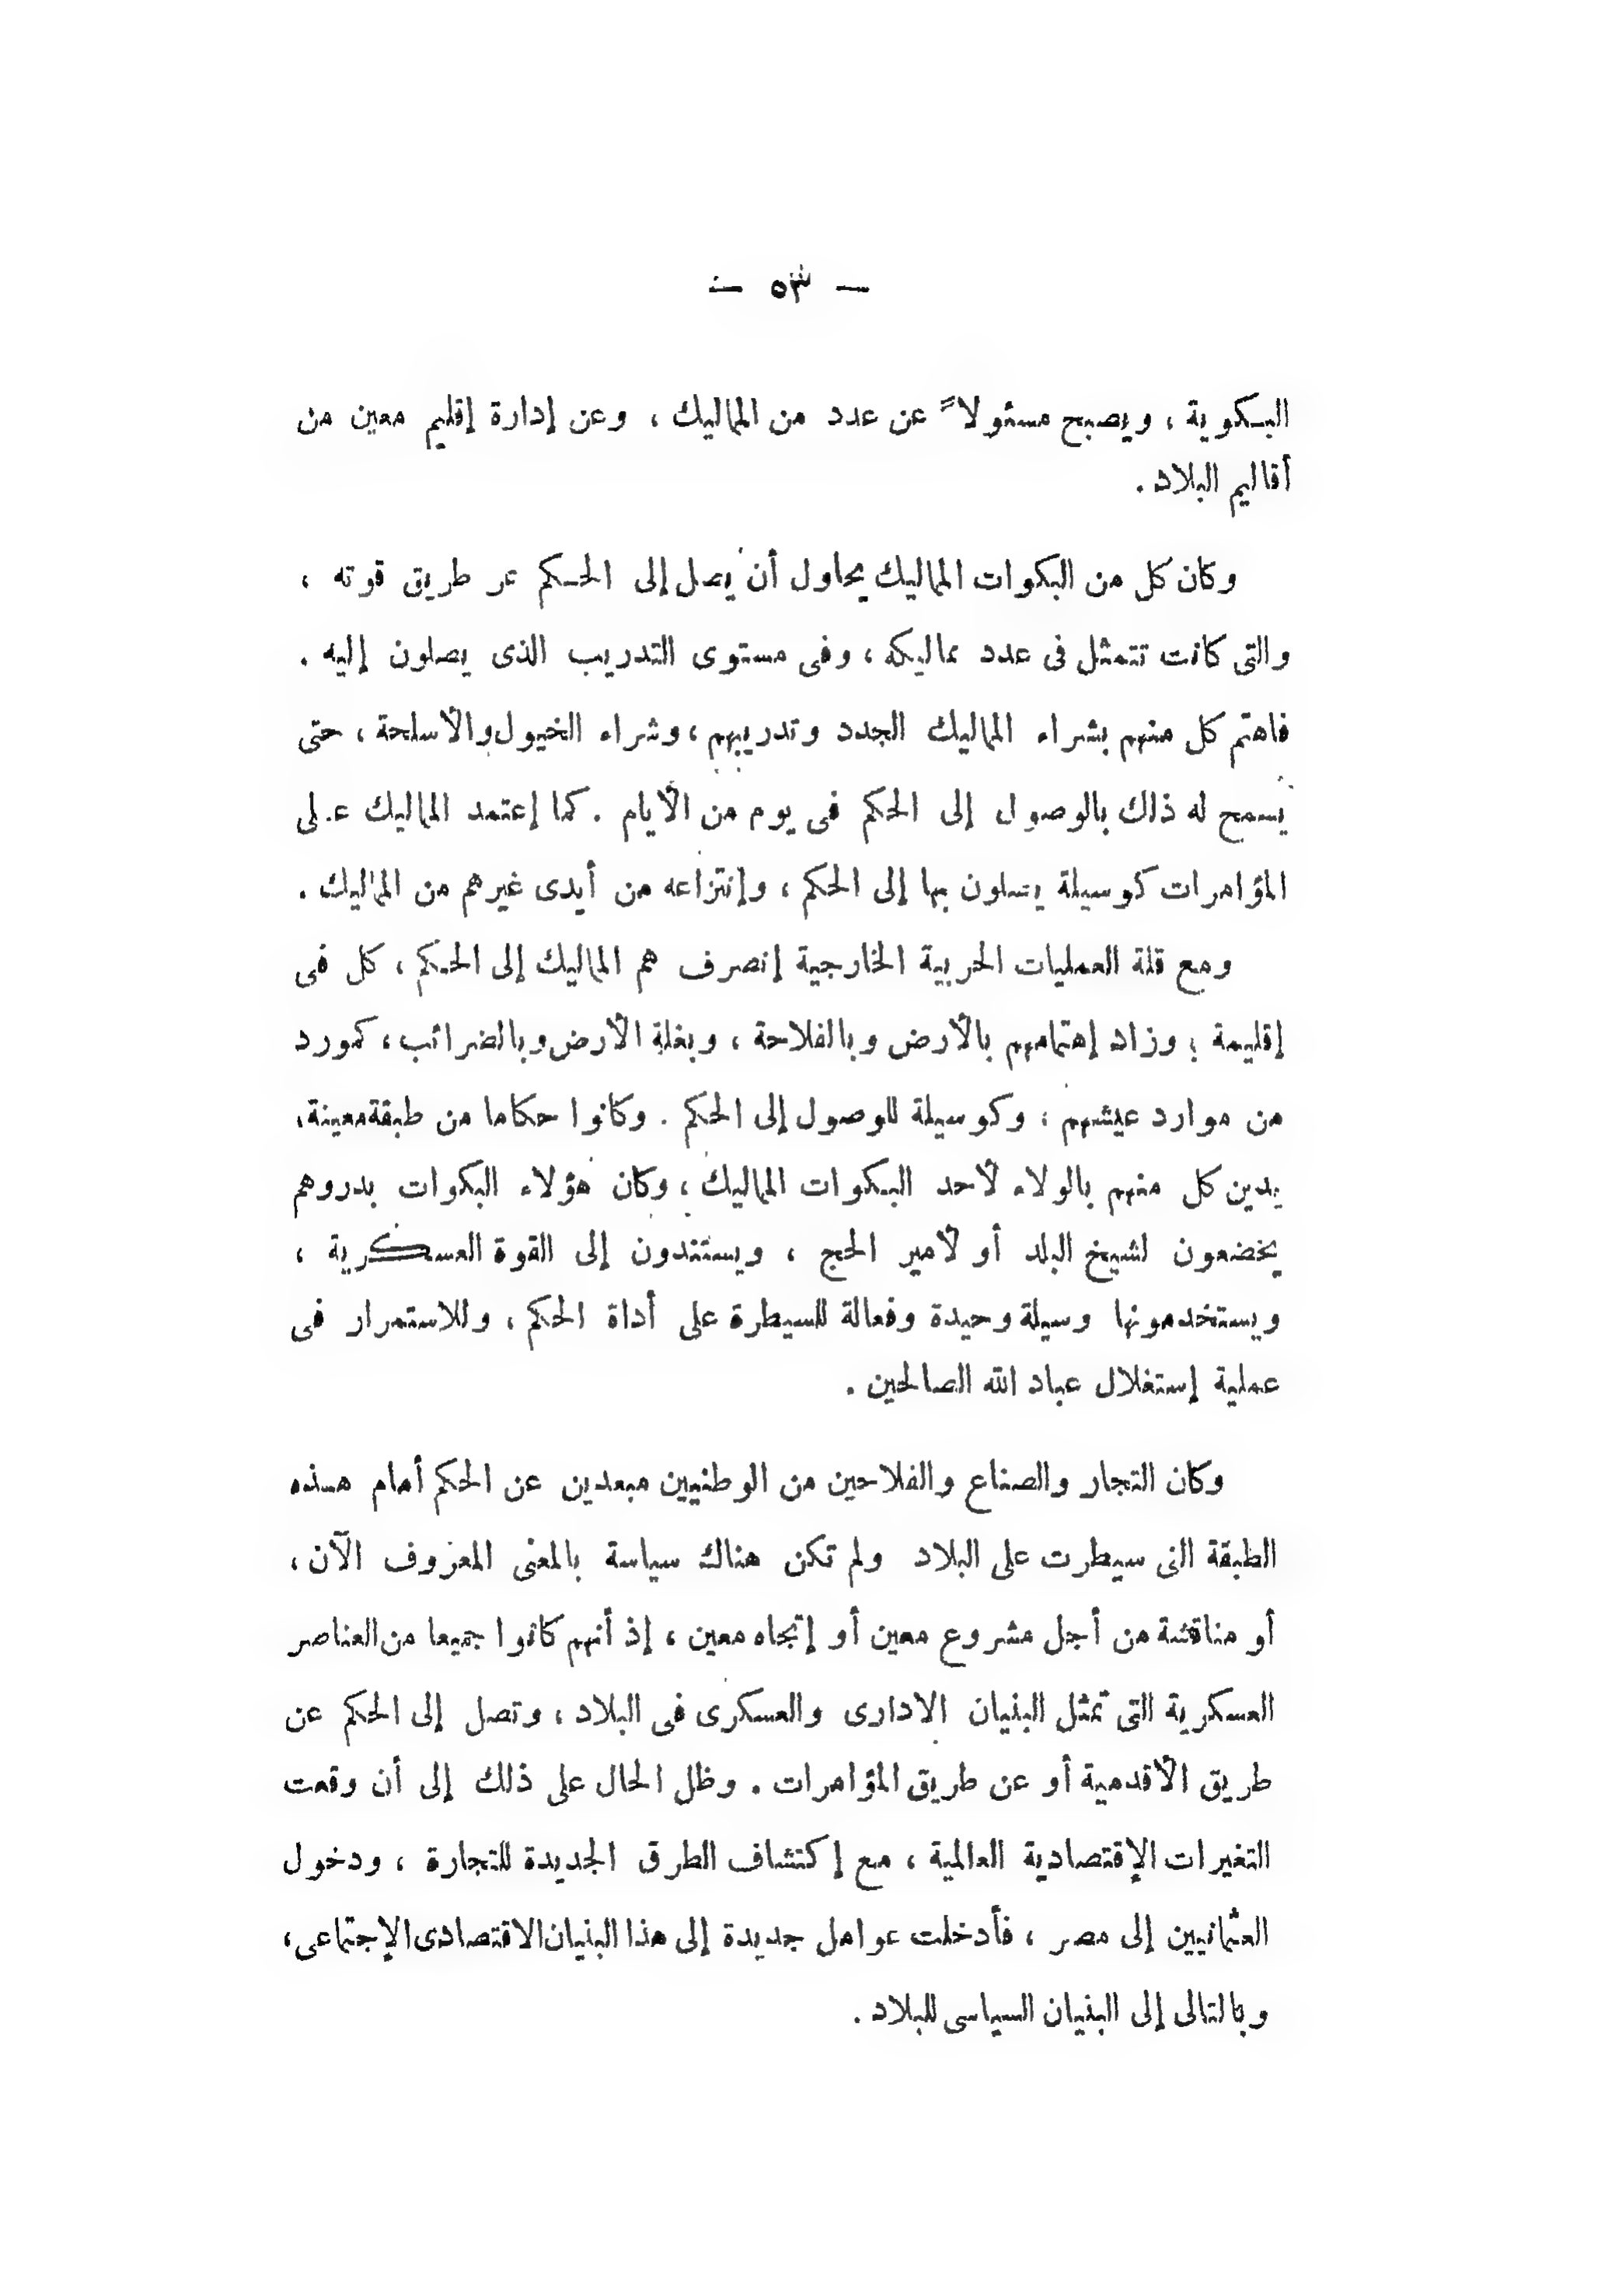 — ٥٣ —
البكوية ، ويصبح مسئولاً عن عدد من المماليك ، وعن إدارة إقليم معين من
أقاليم البلاد .
وكان كل من البكوات المماليك يحاول أن يصل إلى الحكم عن طريق قوته ،
والتى كانت تتمثل فى عدد مماليكه ، وفى مستوى التدريب الذى يصلون إليه .
فاهتم كل منهم بشراء المماليك الجدد وتدريبهم ، وشراء الخيول والأسلحة ، حتى
يسمح له ذلك بالوصول إلى الحكم فى يوم من الأيام . كما إعتمد المماليك على
المؤامرات كوسيلة يصلون بها إلى الحكم ، وإنتزاعه من أيدى غيرهم من المماليك .
ومع قلة العمليات الحربية الخارجية إنصرف هم المماليك إلى الحكم ، كل فى
إقليمة ؛ وزاد إهتمامهم بالأرض وبالفلاحة ، وبغلة الأرض وبالضرائب ، كمورد
من موارد عيشهم ، وكوسيلة للوصول إلى الحكم . وكانوا حكاما من طبقة معينة ،
يدين كل منهم بالولاء لأحد البكوات المماليك ، وكان هؤلاء البكوات بدروهم
يخضعون لشيخ البلد أو لأمير الحج ، ويستندون إلى القوة العسكرية ،
ويستخدمونها وسيلة وحيدة وفعالة للسيطرة على أداة الحكم ، وللاستمرار فى
عملية إستغلال عباد الله الصالحين .
وكان التجار والصناع والفلاحين من الوطنيين مبعدين عن الحكم أمام هذه
الطبقة التى سيطرت على البلاد ولم تكن هناك سياسة بالمعنى المعروف الآن ،
أو مناقشة من أجل مشروع معين أو إتجاه معين ، إذ أنهم كانوا جميعا من العناصر
العسكرية التى تمثل البنيان الادارى والعسكرى فى البلاد ، وتصل إلى الحكم عن
طريق الأقدمية أو عن طريق المؤامرات . وظل الحال على ذلك إلى أن وقعت
التغيرات الإقتصادية العالمية ، مع إكتشاف الطرق الجديدة للتجارة ، ودخول
العثمانيين إلى مصر ، فأدخلت عوامل جديدة إلى هذا البنيان الاقتصادى الإجتماعى ،
وبالتالى إلى البنيان السياسى للبلاد .